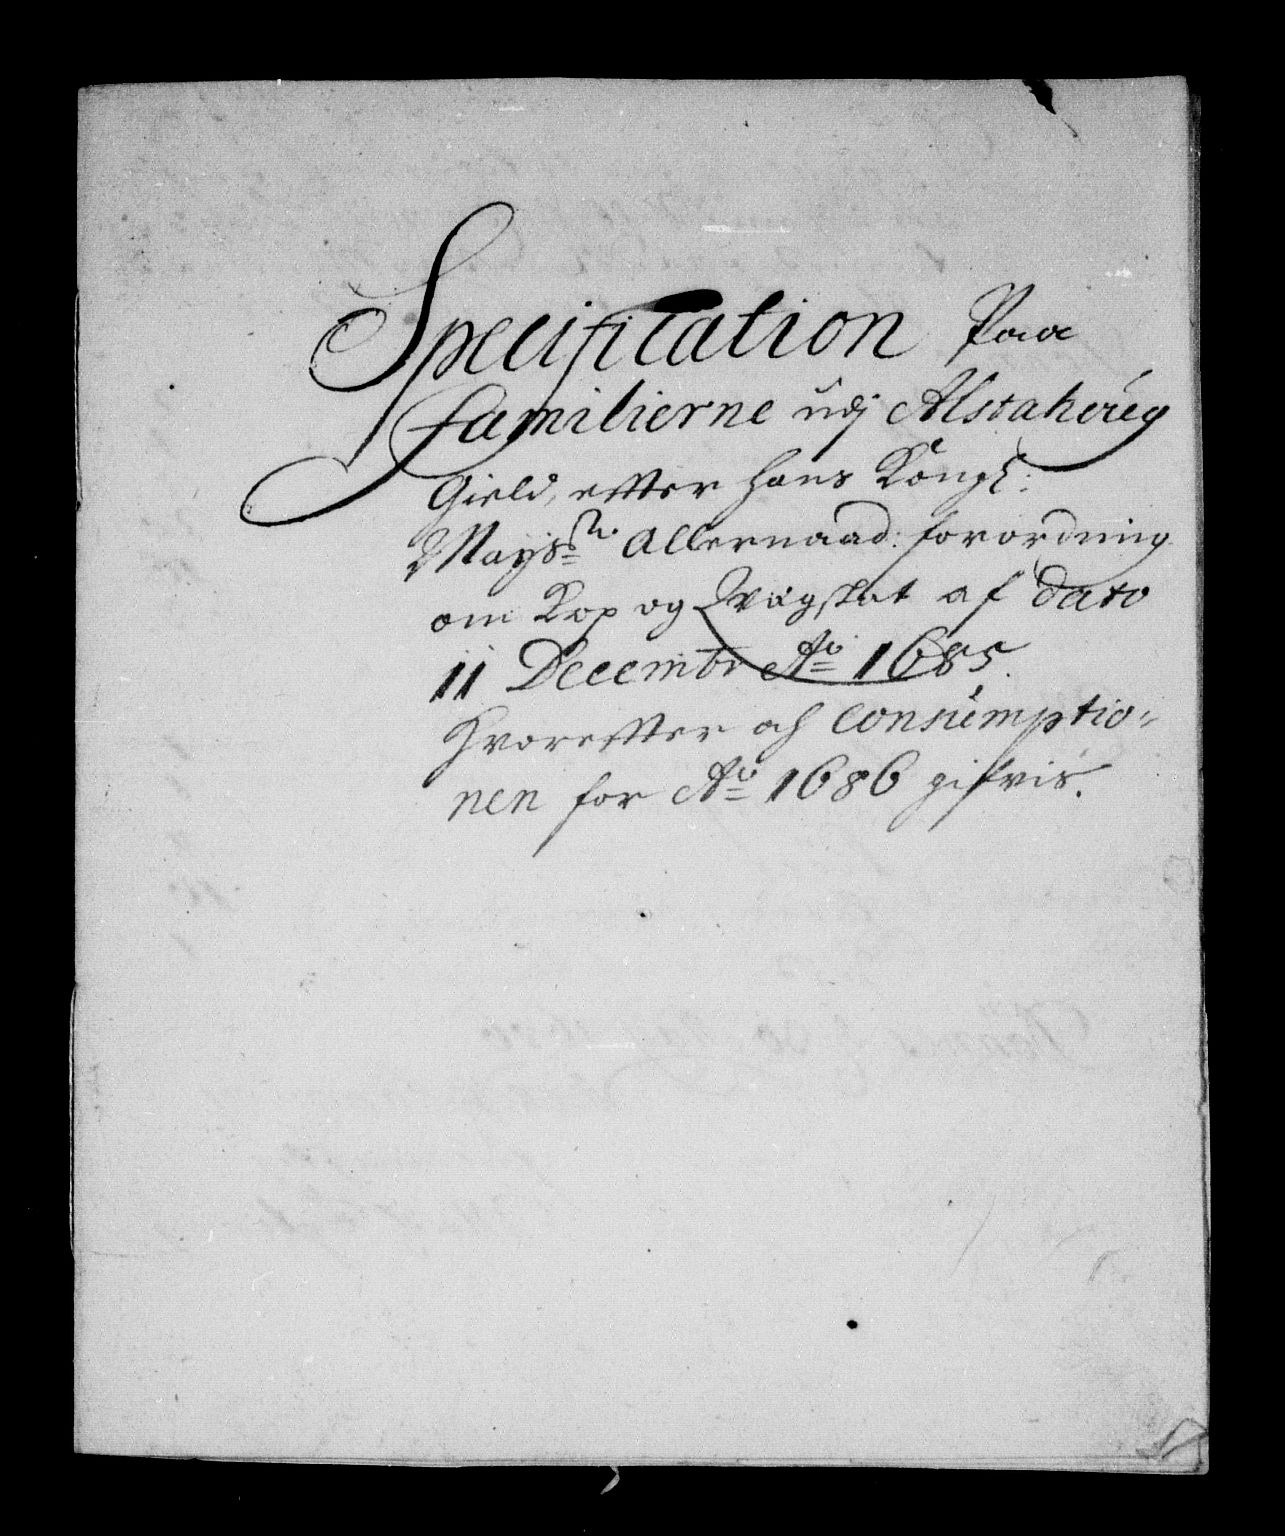 Specification Paa
familierne udj Alstahoug
Gield, efter hans Kongl:
Mayst:s Allernaad: forordning
om Kop og Qvægskat af dato
11 Decembr Ao 1685.
Hvorefter och Consumptio-
nen for Ao 1686 gifvis.